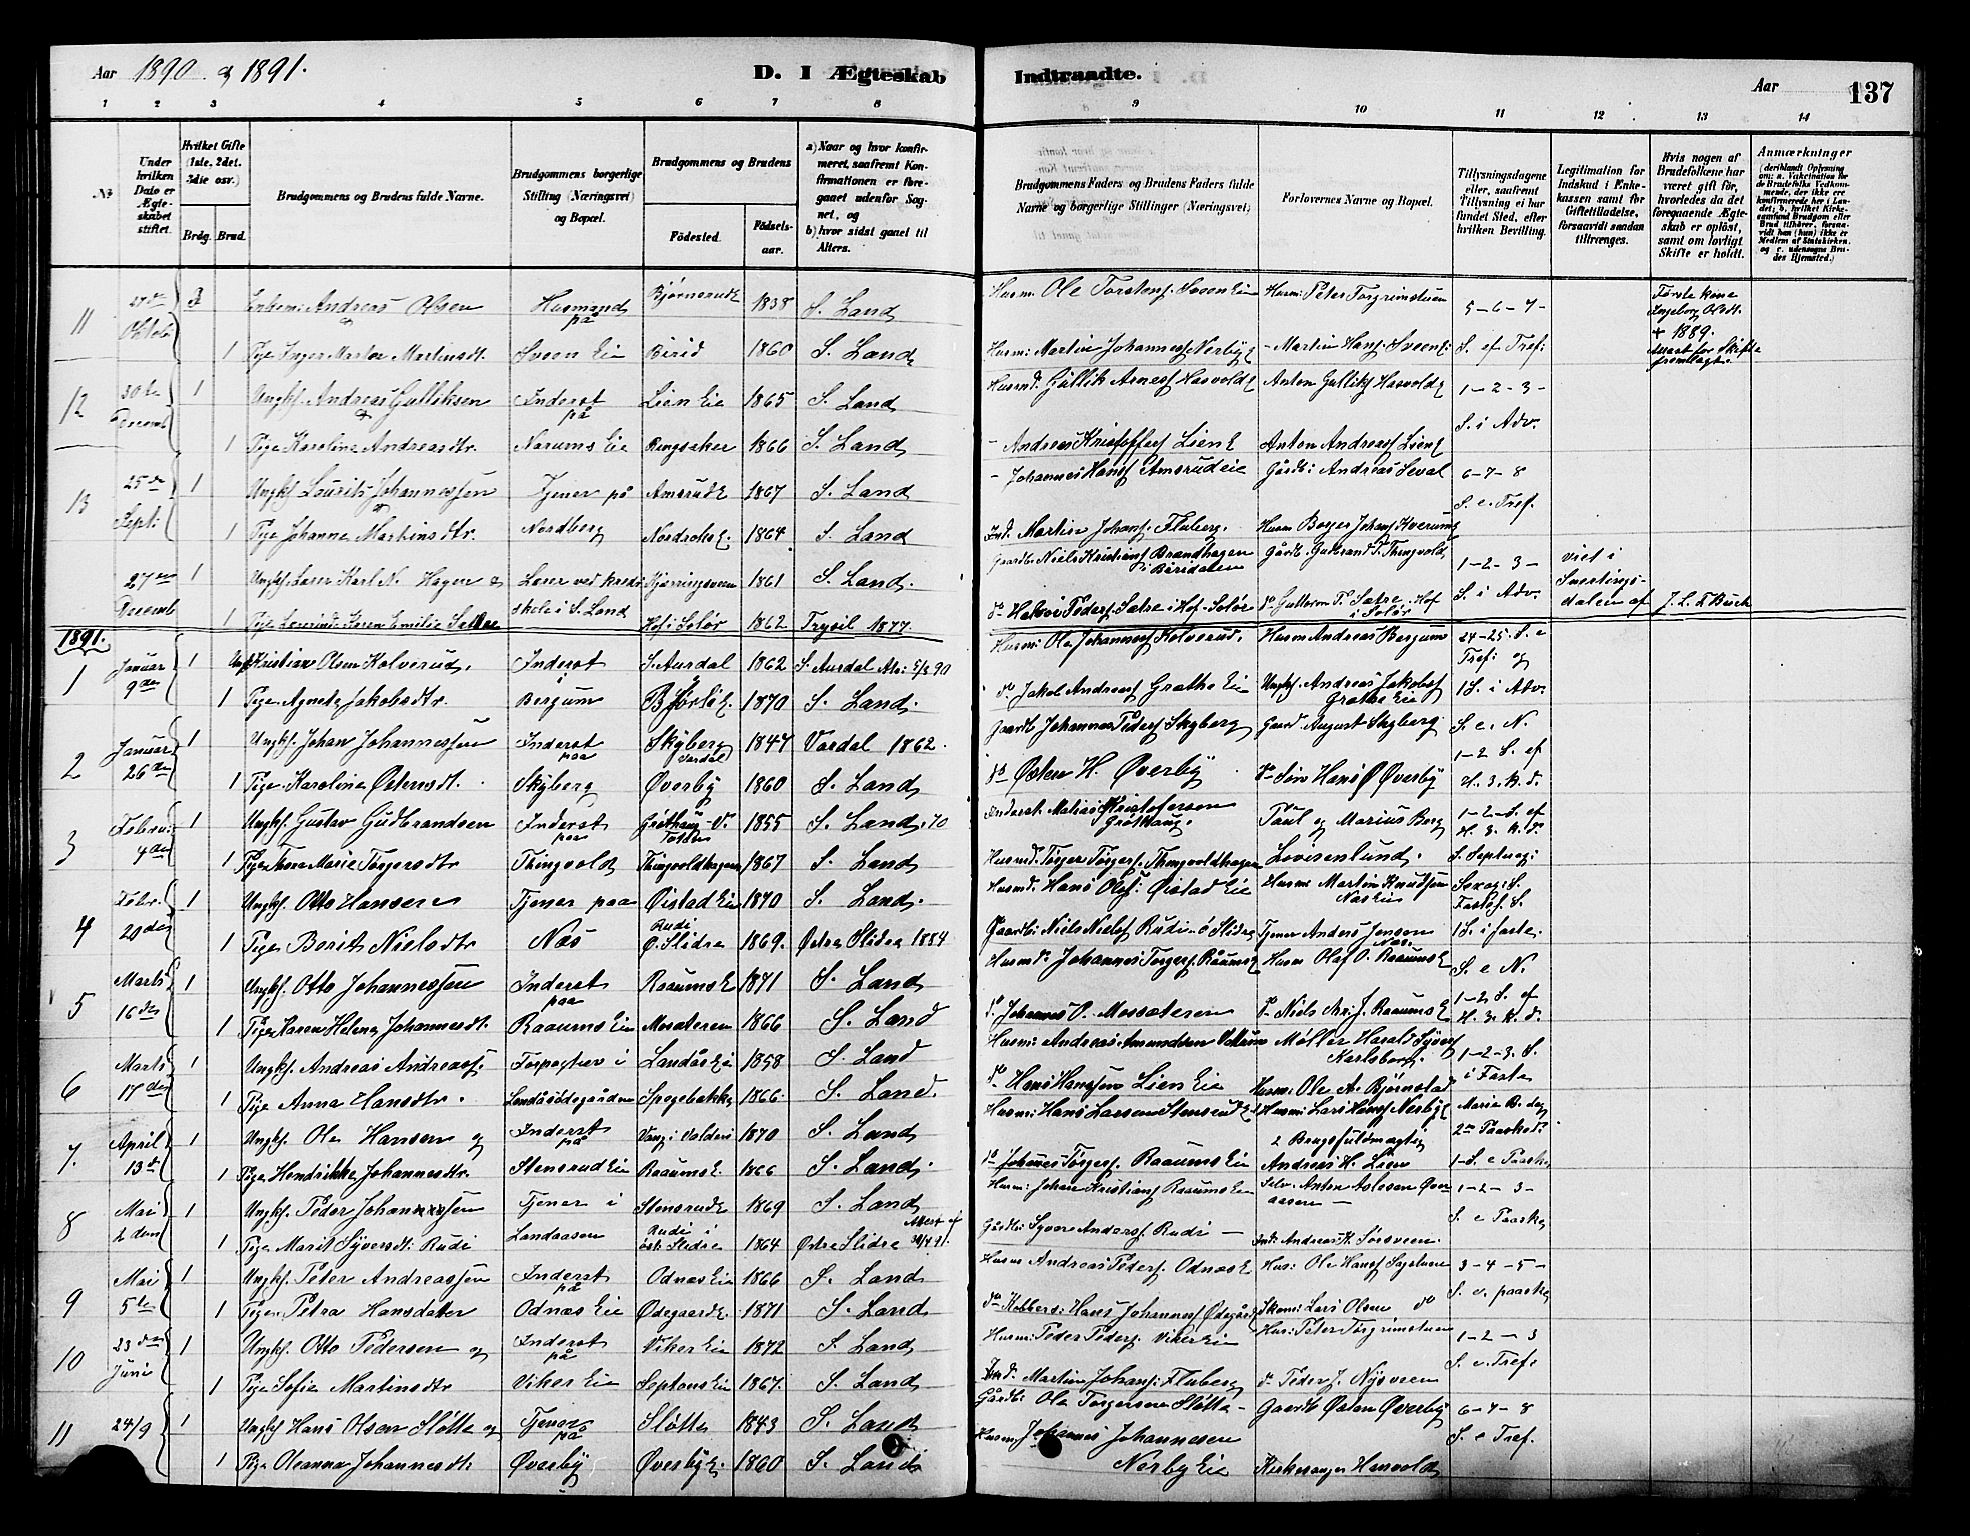 Aar 1890 og 1891.
D. I Ægteskab Indtraadte.
Aar 137
1 2 3 4 5 6 7 8 9 10 11 12 13 14
No
Under hvilken Dato er Ægteskabet stiftet.
Hvilket Gifte (1ste, 2det, 3die osv.)
Brdg. Brud.
Brudgommens og Brudens fulde Navne.
Brudgommens borgerlige Stilling (Næringsvei) og Bopæl.
Brudgommens og Brudens
Fødested.
Fødselsaar.
a) Naar og hvor konfirmeret, saafremt Konfirmationen er foregaaet udenfor Sognet, og
b) hvor sidst gaaet til Alters.
Brudgommens Faders og Brudens Faders fulde Navne og borgerlige Stillinger (Næringsvei)
Forlovernes Navne og Bopæl.
Tillysningsdagene eller, saafremt Tillysning ei har fundet Sted, efter hvilken Bevilling.
Legitimation for Indskud i Enkekassen samt for Giftetilladelse, forsaavidt saadan tiltrænges.
Hvis nogen af Brudefolkene har været gift før, hvorledes da det foregaaende Ægteskab er opløst, samt om lovligt Skifte er holdt.
Anmærkninger
11 27de Oktob 2 Enkem: Andreas Olsen Husmand på Bjørnerud E 1838 S. Land Husm: Ole Torstens. Sveen Eie Husm: Peter Torgrimstuen 5-6-7- Første kone Ingeborg Olsdt. + 1889. Attest for Skifte fremlagt.
1 Pige Inger Martea Martinsdt. Sveen Eie Birid 1860 S. Land Husm: Martin Johannesf. Nerby E - Martin Hansf. Sveen E. S. ef Tref:
12 30te Decemb 1 Ungkf. Andreas Gulliksen Inderst på Lien Eie 1865 S. Land Husmd. Gullik Arnesf Hasvold E Anton Gulliksf Hasvold E 1-2-3- S. i Adv.
1 Pige Karoline Andreasdtr. Narums Eie Ringsaker 1866 S. Land - Andreas Kristoffersf Lien E Anton Andreasf Lien E
13 25de Sept: 1 Ungkf. Laurits Johannessen Tjener på Amsrud E 1867 S. Land - Johannes Hansf Amsrudeie Gårdb: Andreas Seval 6-7-8 S. e. Tref.
1 Pige Johanne Martinsdtr. Nordberg 1864 S. Land Ind. Martin Johansf. Fluberg. Husm Borger Johansf Kverum E
27de Decemb 1 Ungkf. Lærer Karl N. Hagen og Lærer ved kreds skole i S. Land 1861 S. Land. Gaardb: Niels Kristiansf Brandhagen i Biridalen Gårdb. Gulbrand T. Thingvold 1-2-3- S. i Adv. viet i Snertingsdalen af J. L. F. Buch
1 Pige Lærerinde Karen Emilie Sætre Hof i Solør 1862 Trysil 1877. do Halvor Pedersf. Sætre i Hof. Solør do Guttorm P. Sætre. Hof i Solør
1891.
1 Januar 9de 1 Ungkf Kristian Olsen Kolverud. Inderst i S. Aurdal 1862 S. Aurdal Att: 5/3 90 Husm: Ole Johannesf Kolverud. Husm Andreas Bergum 24-25. S. e Tref: og
1 Pige Agnete Jakobsdtr. Bergum 1870 S. Land. do Jakob Andreasf Grøthe Eie Ungkf. Andreas Jakobsf Grøthe Eie 1 S. i Adv.
2 Januar 26de 1 Ungkf. Johan Johannessen Inderst paa Skyberg Vardal 1847 Vardal 1862. Gaardb Johannes Pedersf Skyberg Gaard August Skyberg S. e. N. 1-2 S. ef
1 Pige Karoline Østensdt. Skyberg Øverby 1860 S. Land do Østen H. Øverby do Søn Hans Ø Øverby H. 3. K. d.
3 Februar 4de 1 Ungkf. Gustav Gudbrandsen Inderst paa Grøthaug V. Toten 1855 S. Land. 70 Inderst. Matias Kristofersen Grøthaug. Paul og Marius Berg 1-2-S. ef H. 3. K. d.
1 Pige Thora Marie Torgersdtr Thingvold Thingvoldhagen 1867 S. Land Husmd. Torger Torgersf. Thingvoldhagen Lovisenlund. S. Septuag:
4 Febr. 20de 1 Ungkf. Otto Hansen Tjener paa Øistad Eie 1870 S. Land. Husmd. Hans Olsf. Øistad Eie Husm: Martin Knudsen Næs Eie Sexag: S. Fastel. S.
1 Pige Berit Nielsdtr Næs Rudi Ø. Slidre 1869. Østre Slidre 1884 Gaardb: Niels Nielsf Rudi i Ø Slidre Tjener Anders Jensen Næs. 1 S. i faste.
5 Marts 16de 1 Ungkf. Otto Johannessen Inderst paa Raaums E 1871 S. Land Husmd. Johannes Torgersf. Raaums E Husm Olaf O. Raaums E S. e N.
1 Pige Karen Helene Johannesdt. Raaums Eie Messeteren 1866 S. Land do Johannes O. Messeteren do Niels Kr. J. Raaums E 1-2 S. ef H. 3. K. d.
6 Marts 17de 1 Ungkf. Andreas Andreasf. Forpagter i Landås Eie 1858 S. Land Husm: Andreas Amundsen Møller Harald Syversf Karlsborg. 1-2-3. S. i Faste
1 Pige Anna Hansdtr. Landåsødegaarden Spogebakke 1866. S. Land. do Hans Hanssen Lien Eie Husm: Ole A. Bjørnstad Marie B. dag
7. April 13de 1 Ungkf. Ole Hansen og Inderst på Vang i Valders 1870 S. Land Husm: Hans Larsen Stensrud E Husm: Lars Hansf Nerby E 2en Paaskd:
1 Pige Hendrikke Johannesdtr. Stensrud Eie Raaums E. 1866 S. Land. do Johannes Torgersf. Raaums Eie 2 Brugsfuldmægtig Andreas H. Lien 1-S. e Paaske
8 Mai 2den 1 Ungkf. Peder Johannessen Tjener i Stensrud E 1869 S. Land Husm: Johan Kristiansf Raaums Eie Selv. Anton Aslesen Øveraasen - 1-2-3-
1 Pige Marit Syversdt: Rudi Landaasen Rudi i øst: Slidre 1864 Østre Slidre Attest af 30/4 91. Gårdb: Syver Andersf Rudi - Ind: Andreas K. Sørsveen. S. e Paaske
9 Mai 5te 1 Ungkf. Peter Andreassen Inderst på Odnæs Eie 1866 S. Land Husm Andreas Pedersf. Odnæs E Hus: Ole Hansf Sagstuen 3-4-5-
1 Pigen Petra Hansdatter Odnæs Eie Ødegaard E 1871 S. Land do Kobbers: Hans Johannesf Ødegård E Skom: Lars Olsen do S. e. paaske
10 23de Juni 1 Ungkf. Otto Pedersen og Inderst på Viker Eie 1872 S. Land Husm: Peder Pedersf. Viker Eie Hus: Peter Torgrimstuen 1-2-3
1 Pige Sofie Martinsdtr Viker Eie Septons Eie 1867. S. Land Ind. Martin Johansf: Fluberg do Peder J. Nysveen S. e. Tref:
11 24/9 1 Ungkf Hans Olsen Sløtte og Tjener på Sløtte 1843 S. Land Gårdb: Ole Torgersen Sløtte - Gaardb Østen Øverby 6-7-8
1 Pige Oleanna Johannesdt: Øverby Øverby E. 1860 S. Land Husm Johannes Johannesen Nerby Eie Kirkesanger Hasvold S. e Tref.